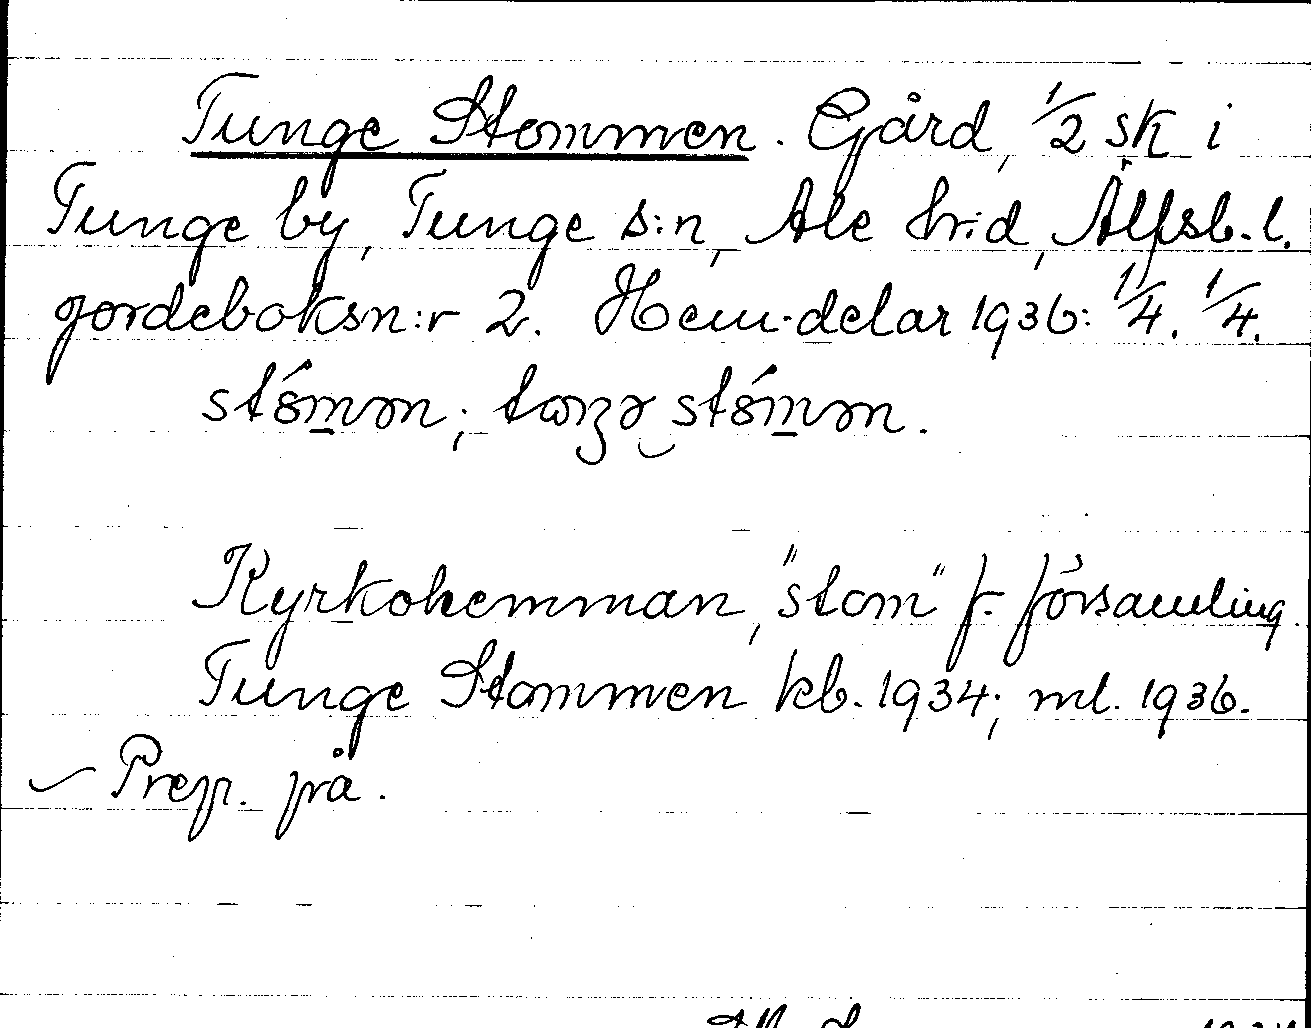 Tunge Stommen. Gård, 1/2 sk i
Tunge by, Tunge s:n, Ale hrd, Älfsb. l.
jordeboksn:r 2. Hem.delar 1936: 1/4. 1/4.
Kyrkohemman, "stom" f. församling.
Tunge Stommen kb. 1934; ml. 1936.
Prep. på.